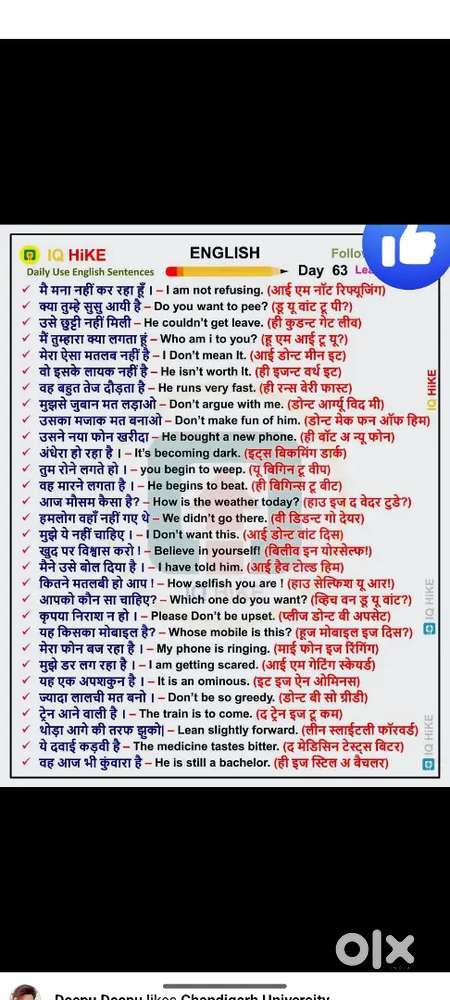 IQ HiKE
ENGLISH
Follo
Daily Use English Sentences
Day 63 Lea
मै मना नहीं कर रहा हूँ । – I am not refusing. (आई एम नॉट रिफ्यूजिंग)
क्या तुम्हे सुसु आयी है – Do you want to pee? (डू यू वांट टू पी?)
उसे छुट्टी नहीं मिली – He couldn't get leave. (ही कुडन्ट गेट लीव)
मैं तुम्हारा क्या लगता हूं – Who am i to you? (हू एम आई टू यू?)
मेरा ऐसा मतलब नहीं है – I Don't mean It. (आई डोन्ट मीन इट)
वो इसके लायक नहीं है – He isn't worth It. (ही इजन्ट वर्थ इट)
वह बहुत तेज दौड़ता है – He runs very fast. (ही रन्स वेरी फास्ट)
मुझसे जुबान मत लड़ाओ – Don't argue with me. (डोन्ट आर्ग्यू विद मी)
उसका मजाक मत बनाओ – Don't make fun of him. (डोन्ट मेक फन ऑफ हिम)
उसने नया फोन खरीदा – He bought a new phone. (ही बॉट अ न्यू फोन)
अंधेरा हो रहा है । – It's becoming dark. (इट्स बिकमिंग डार्क)
तुम रोने लगते हो । – you begin to weep. (यू बिगिन टू वीप)
वह मारने लगता है । – He begins to beat. (ही बिगिन्स टू बीट)
आज मौसम कैसा है? – How is the weather today? (हाउ इज द वेदर टुडे?)
हमलोग वहाँ नहीं गए थे – We didn't go there. (वी डिडन्ट गो देयर)
मुझे ये नहीं चाहिए । – I Don't want this. (आई डोन्ट वांट दिस)
खुद पर विश्वास करो ! – Believe in yourself! (बिलीव इन योरसेल्फ!)
मैने उसे बोल दिया है । – I have told him. (आई हैव टोल्ड हिम)
कितने मतलबी हो आप ! – How selfish you are ! (हाउ सेल्फिश यू आर!)
आपको कौन सा चाहिए? – Which one do you want? (व्हिच वन डू यू वांट?)
कृपया निराश न हो । – Please Don't be upset. (प्लीज डोन्ट बी अपसेट)
यह किसका मोबाइल है? – Whose mobile is this? (हूज मोबाइल इज दिस?)
मेरा फोन बज रहा है । – My phone is ringing. (माई फोन इज रिंगिंग)
मुझे डर लग रहा है । – I am getting scared. (आई एम गेटिंग स्केयर्ड)
यह एक अपशकुन है । – It is an ominous. (इट इज ऐन ओमिनस)
ज्यादा लालची मत बनो । – Don't be so greedy. (डोन्ट बी सो ग्रीडी)
ट्रेन आने वाली है । – The train is to come. (द ट्रेन इज टू कम)
थोड़ा आगे की तरफ झुको| – Lean slightly forward. (लीन स्लाईटली फॉरवर्ड)
ये दवाई कड़वी है – The medicine tastes bitter. (द मेडिसिन टेस्ट्स बिटर)
वह आज भी कुंवारा है – He is still a bachelor. (ही इज स्टिल अ बैचलर)
IQ HiKE
IQ HiKE
IQ HiKE
IQ HiKE
olx
Deepu Deepu likes Chandigarh University